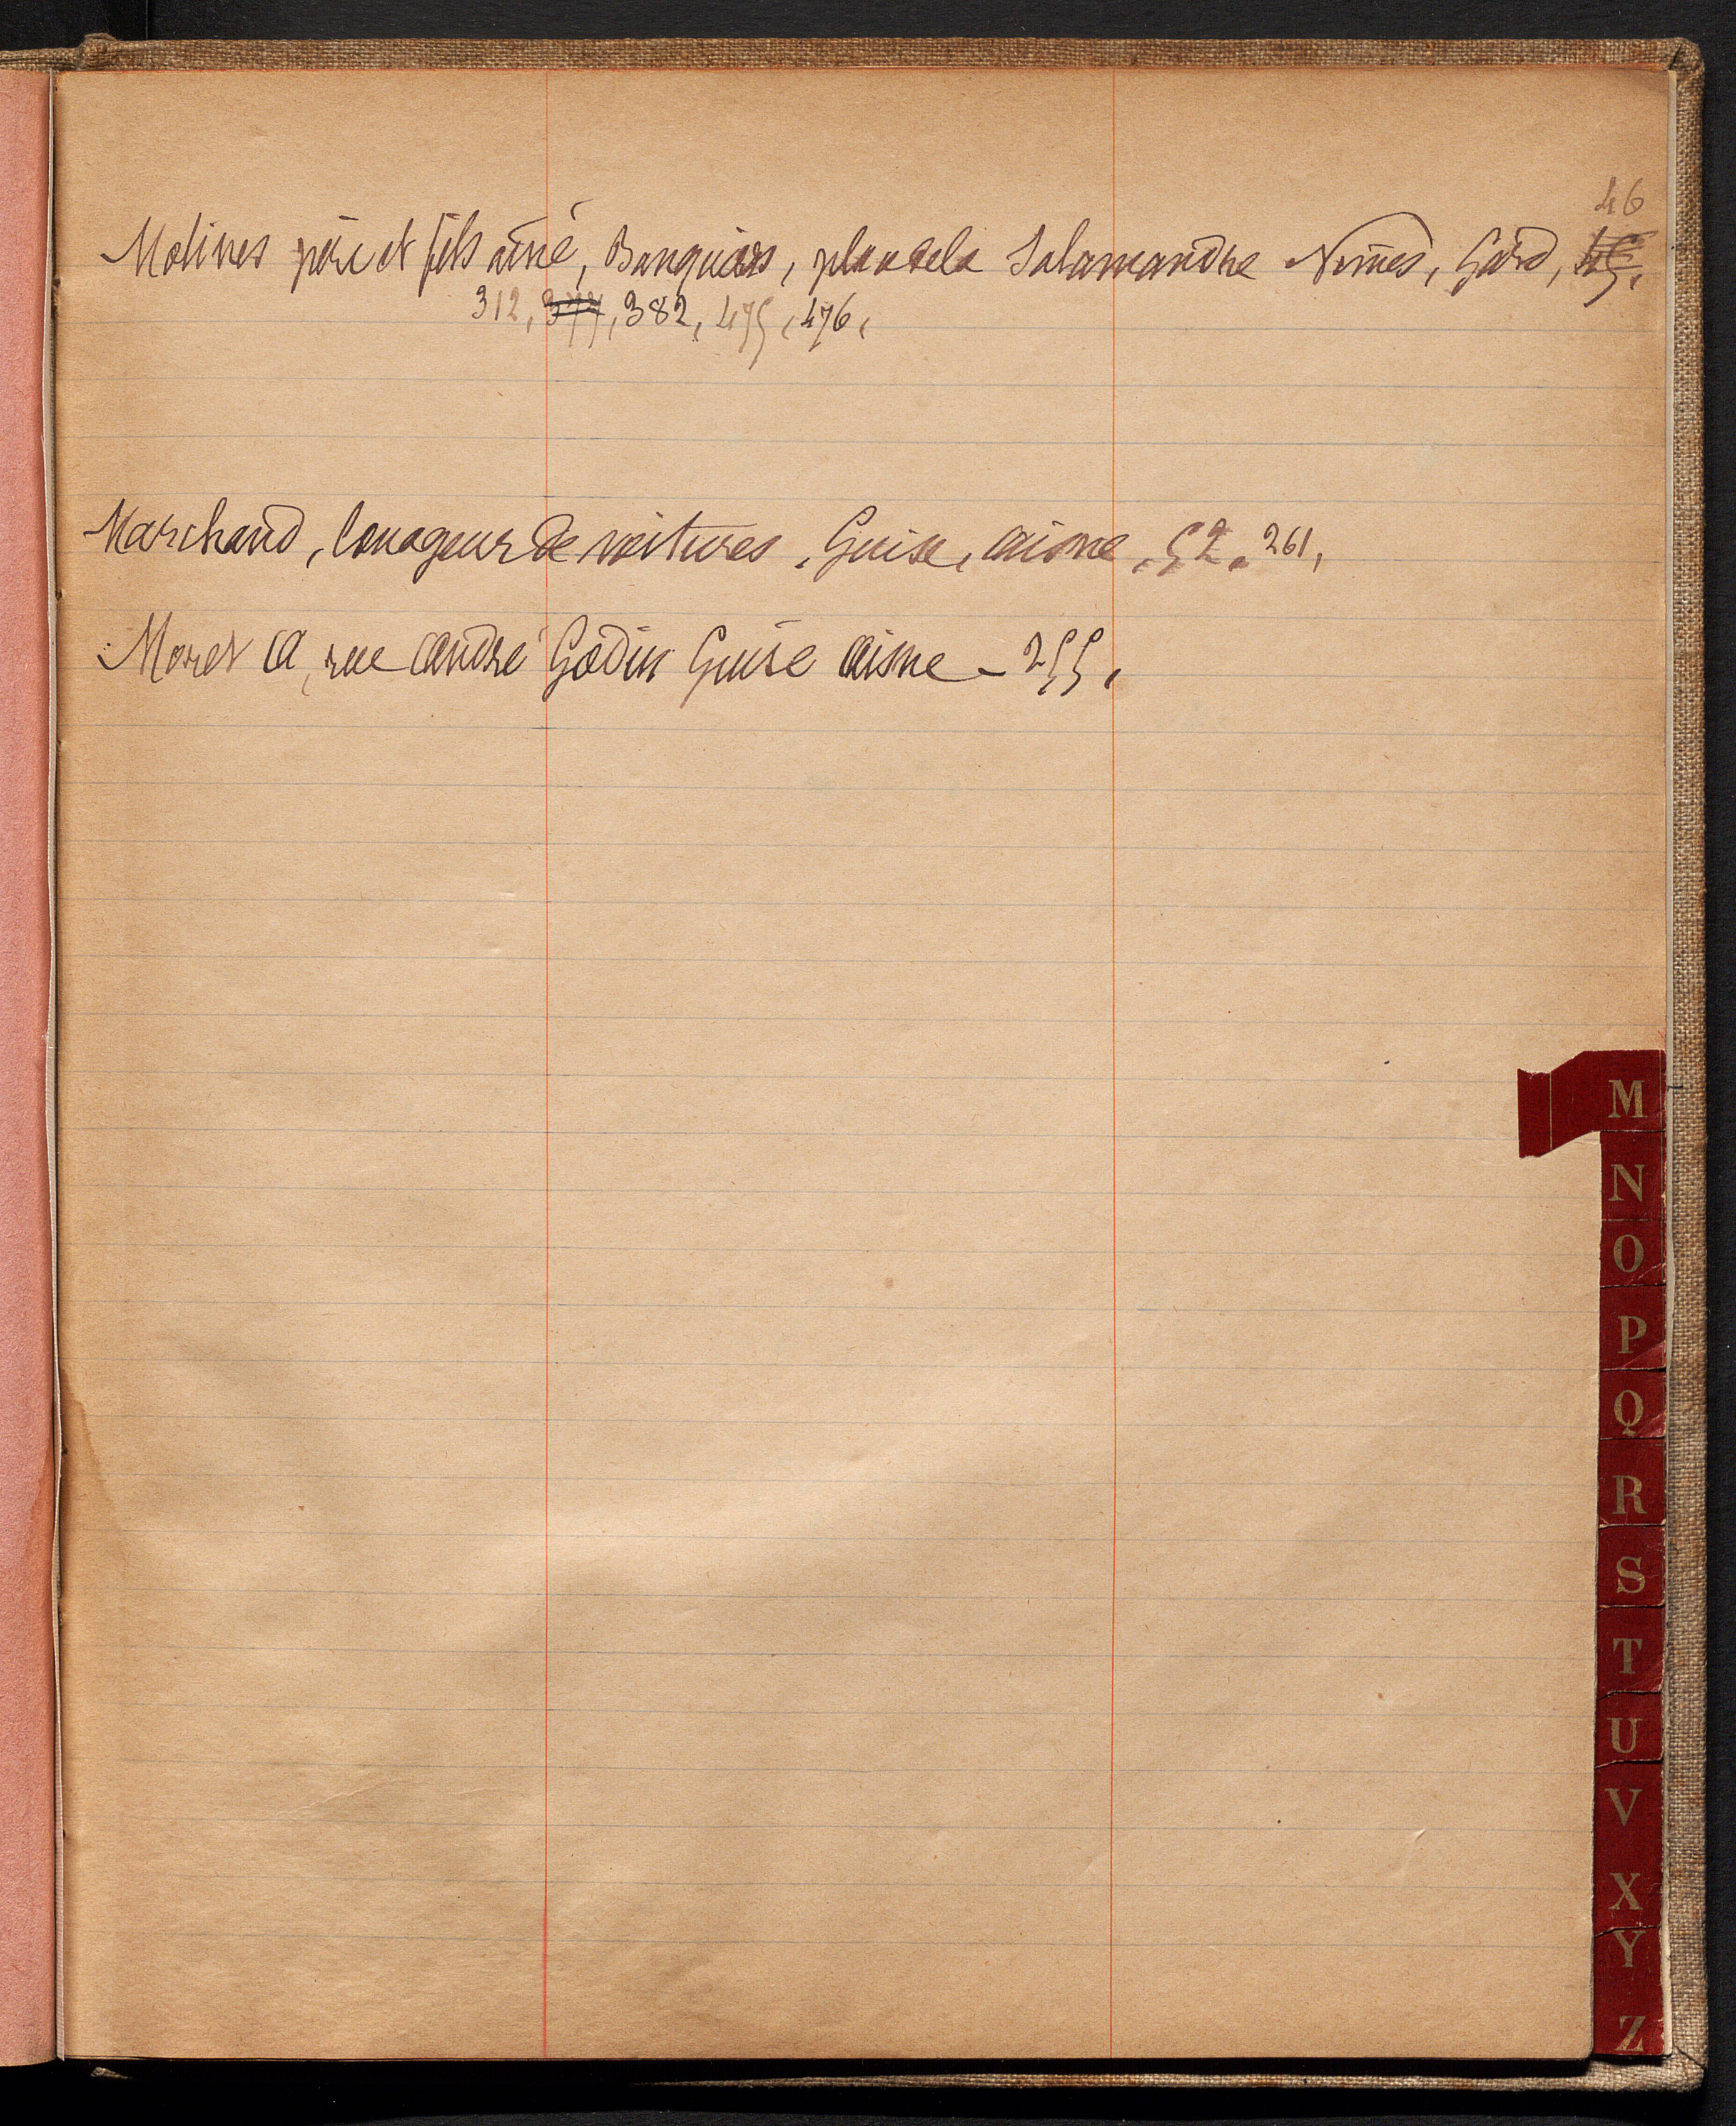 46
Molines père et fils aîné, Banquiers, place de la Salamandre Nîmes, Gard, 45,
312, 377, 382, 475, 476,
Marchand, louageur de voitures, Guise, aisne, 52, 261,
Moret A, rue André Godin Guise Aisne - 255,
M
N
O
P
Q
R
S
T
U
V
X
Y
Z